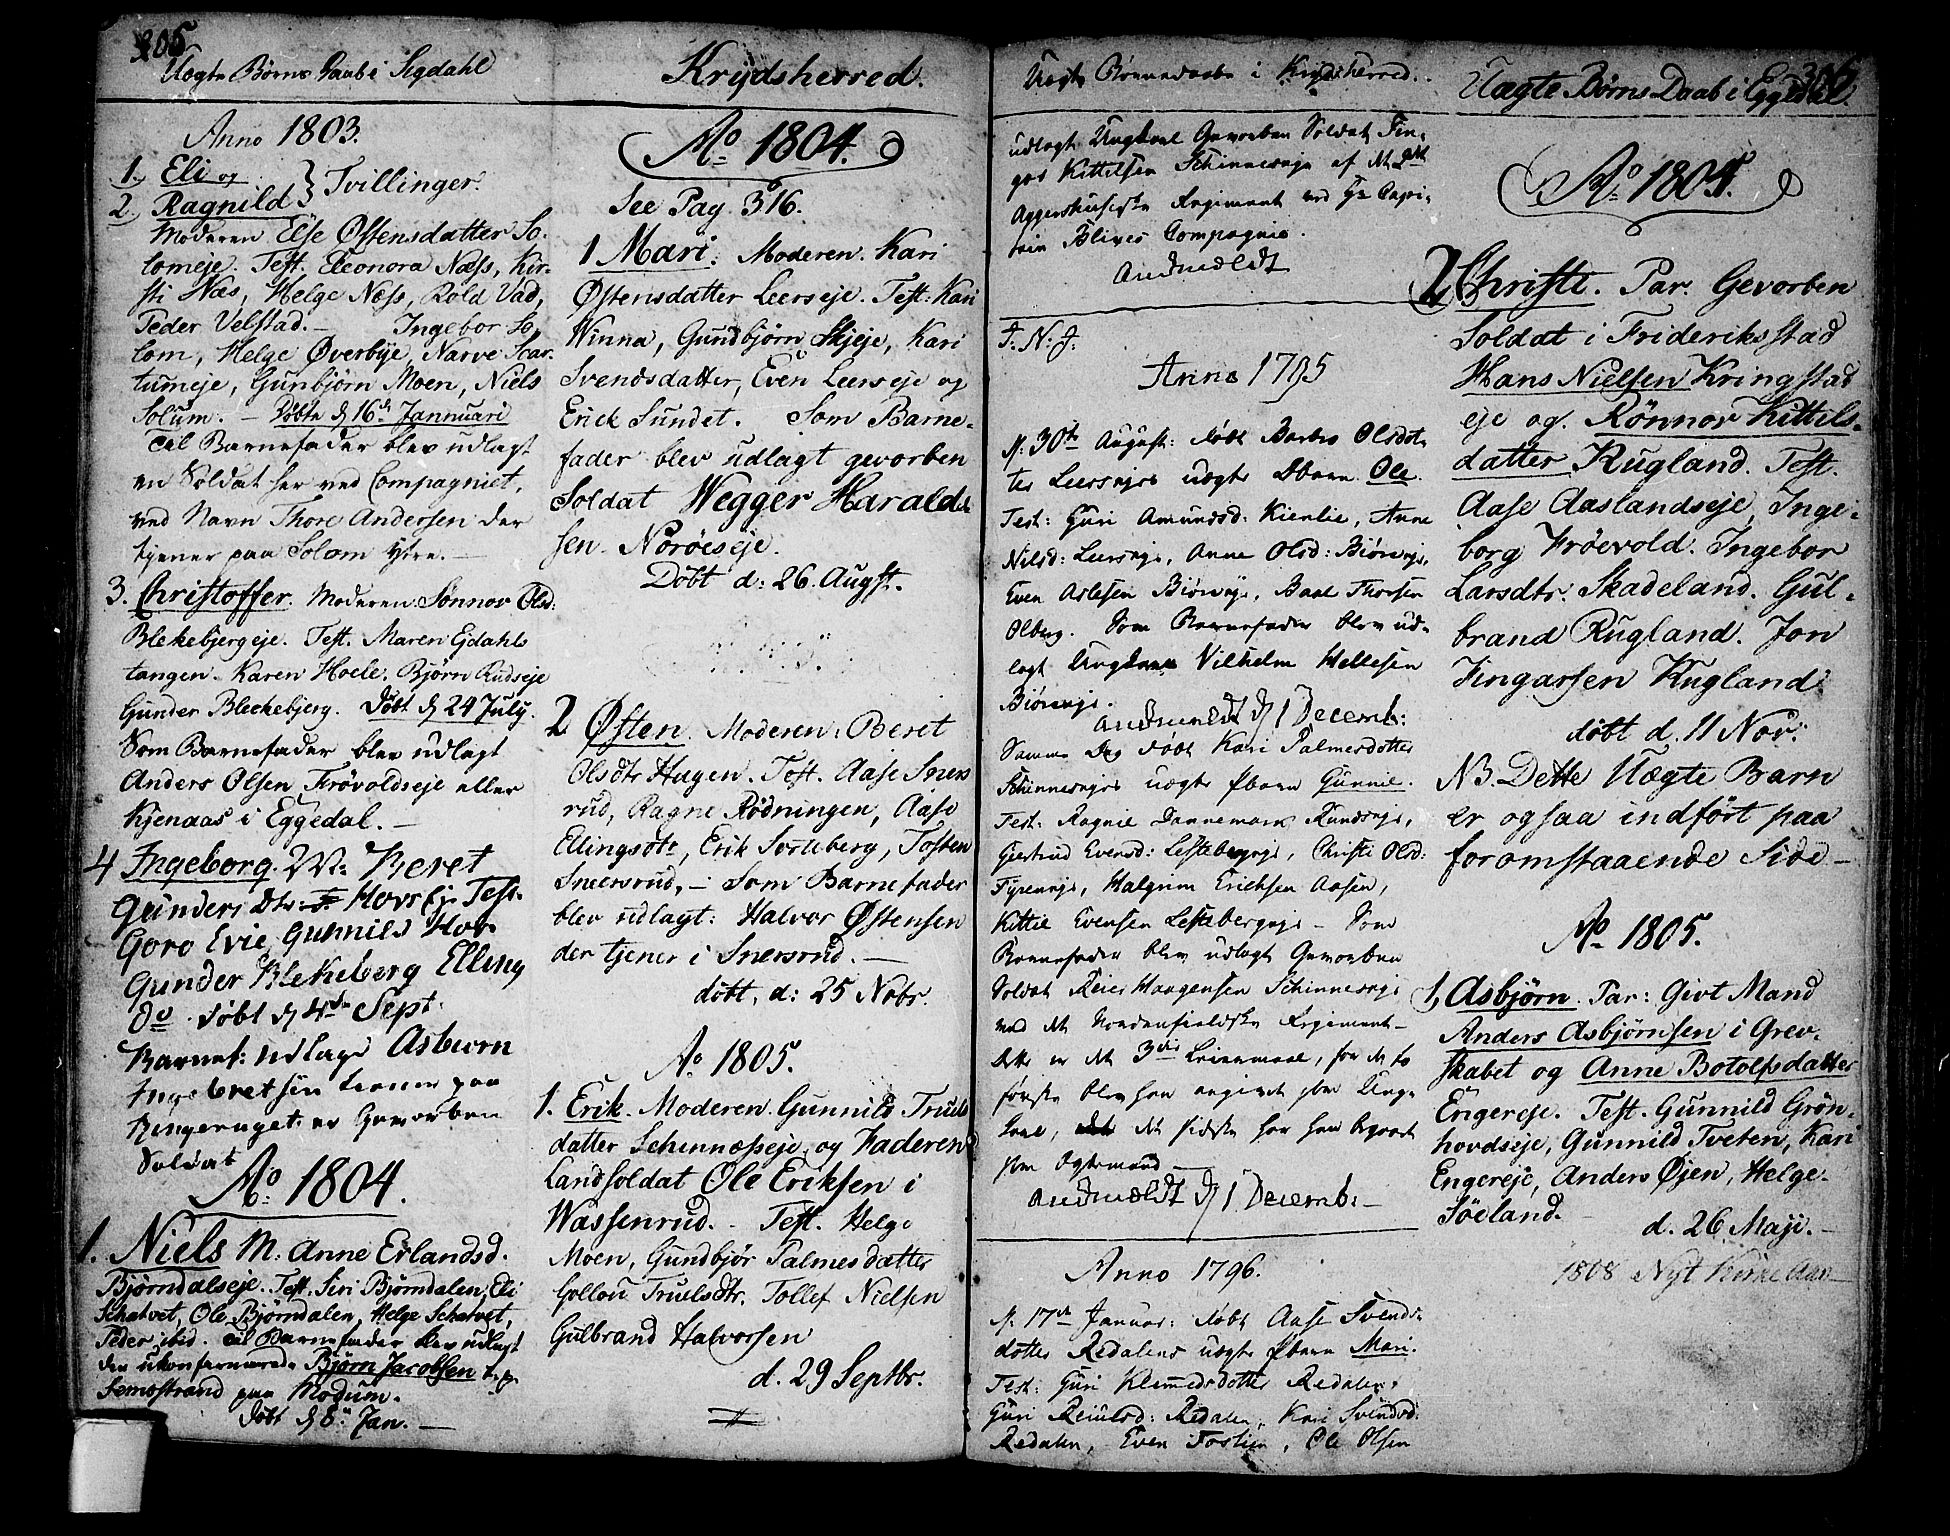 305
Uægte Børns Daab i Sigdahl
Anno 1803.
1. Eli og
2. Ragnild } Tvillinger.
Moderen Else Østensdatter So-
lomeje. Test. Eleonora Næss, Kir-
sti Næs, Helge Næss, Rold Vad,
Peder Velstad. – Ingebor So-
lom, Helge Øverbye, Narve Scar-
tumeje, Gunbjörn Moen, Niels
Solum. – Döbte d 16de Jannuari
til Barnefader blev udlagt
en Soldat her ved Compagniet,
ved Navn Thore Andersen der
tjener paa Solom ytre. –
3. Christoffer. Moderen: Sønnov Olsd:
Blekebjergeje. Test. Maren Ejdahls
tangen. Karen Hoele. Bjørn Rudseje
Gunder Bleckebjerg. Döbt d 24 July.
Som Barnefader blev udlagt
Anders Olsen Frövoldseje eller
Kjenaas i Eggedal. –
4 Ingeborg. M: Beret
Gunders Dtr: Hovs Ej. Test.
Goro Evie Gunnild Hov
Gunder Blekeberg Elling
do. döbt d 4de Sept:
Barnef: udlagt Asbiorn
Ingebretsen tiener paa
Ringeriget er Gevorben
Soldat
Ao 1804.
1. Niels M: Anne Erlandsd.
Bjørndalseje. Test. Siri Bjørndalen, Eli
Schatvet, Ole Bjørndalen, Helge Schatvet,
Peder ibid. til Barnefader blev udlagt
den ukonfirmerede Bjørn Jacobsen
Semostrand paa Modum.
Döbt d 8de Jan. –
Krydsherred.
Ao 1804.
See Pag. 316.
1 Mari. Moderen. Kari
Østensdatter Leerseje. Test: Kari
Winna, Gundbjörn Skjeje, Kari
Svendsdatter, Even Leerseje og
Erick Sundet. Som Barne-
fader blev udlagt gevorben
Soldat Wegger Harald-
sen Noröeseje.
Döbt d: 26. Augst.
2 Østen. Moderen: Beret
Olsdtr Hagen. Test. Aase Sners
rud, Ragne Rödningen, Aase
Ellingsdtr, Erik Sorteberg, Tosten
Snersrud, – Som Barnefader
blev udlagt: Halvor Østensen
der tjener i Snersrud. –
döbt, d: 25 Nobr.
Ao 1805.
1. Erik. Moderen. Gunnild Truls
datter Schinnesseje, og Faderen
Landsoldat Ole Eriksen i
Wassenrud. – Test. Helge
Moen, Gundbjör Palmesdatter
Gollou Truelsdtr. Tollef Nielsen
Gulbrand Halvorsen
d. 29 Septbr.
Uægte Börnedaab i Krydsherred.
udlagt Ungkarl Gevorben Soldat Fin-
gar Kittelsen Schinneseje af det 2det
Aggershusiske Regiment ved Hr Capi-
tain Blixes Compagnie.
Andmeldt
I. N. J.
Anno 1795
d. 30te August: döbt Barbro Olsdot-
ter Leersejes uægte Dbarn Ole.
Test: Guri Amundsd: Kienlie, Anne
Nilsd: Leerseje, Anne Olsd: Biöreeje,
Even Atlesen Biöreeje, Baar Thorsen
Olberg. Som Barnefader blev ud-
lagt Ungkarl Vilhelm Hellesen
Biöreeje.
Andmeldt d 1 Decemb:
Samme Dag döbt Kari Palmesdotter
Schinnesejes uægte Pbarn Gunnil.
Test: Ragnil Dannemark Rundseje,
Giertrud Evensd: Lestebergeje, Christi Olsd:
Fyreneje, Halgrim Ericksen Aasen,
Kittil Evensen Lestebergeje – Som
Barnefader blev udlagt Gevorben
Soldat Reier Haagensen Schinneseje
ved det Nordenfieldske Regiment –
dette er det 3die Leiermaal, for de to
første blev han angivet som Ung-
karl, det sidste har han begaaet
som Egtemand –
Andmeldt d 1 Decemb: –
Anno 1796.
d. 17de Januar: döbt Aase Svends-
dotter Redalens uægte Pbarn Mari.
Test: Guri Klemedsdotter Redalen,
Guri Reiulsd: Redalen, Kari Svendsd:
Redalen, Even Fostien, Ole Olsen
306
Uægte Børns Daab i Eggedal.
Ao 1804.
2 Christi. Par. Gevorben
Soldat i Frideriksstad
Hans Nielsen Kringstad
eje og. Rönnov Kittils-
datter Rugland. Test.
Aase Aaslandseje, Inge-
borg Fröevold. Ingebor
Larsdtr: Skadeland. Gul-
brand Rugland. Jon
Fingarsen Rugland
döbt d. 11 Nov:
NB. Dette Uægte Barn
er ogsaa indfört paa
foromstaaende Side –
Ao 1805.
1, Asbjörn. Par: Givt Mand
Anders Asbjörnsen i Grev-
skabet og Anne Botolfsdatter
Engereje. Test. Gunnild Grön-
hovdseje, Gunnild Tveten, Kari
Engereje, Anders Øjen, Helge
Söeland. –
d. 26 Maji. –
1808 Nyt Kirke Aar